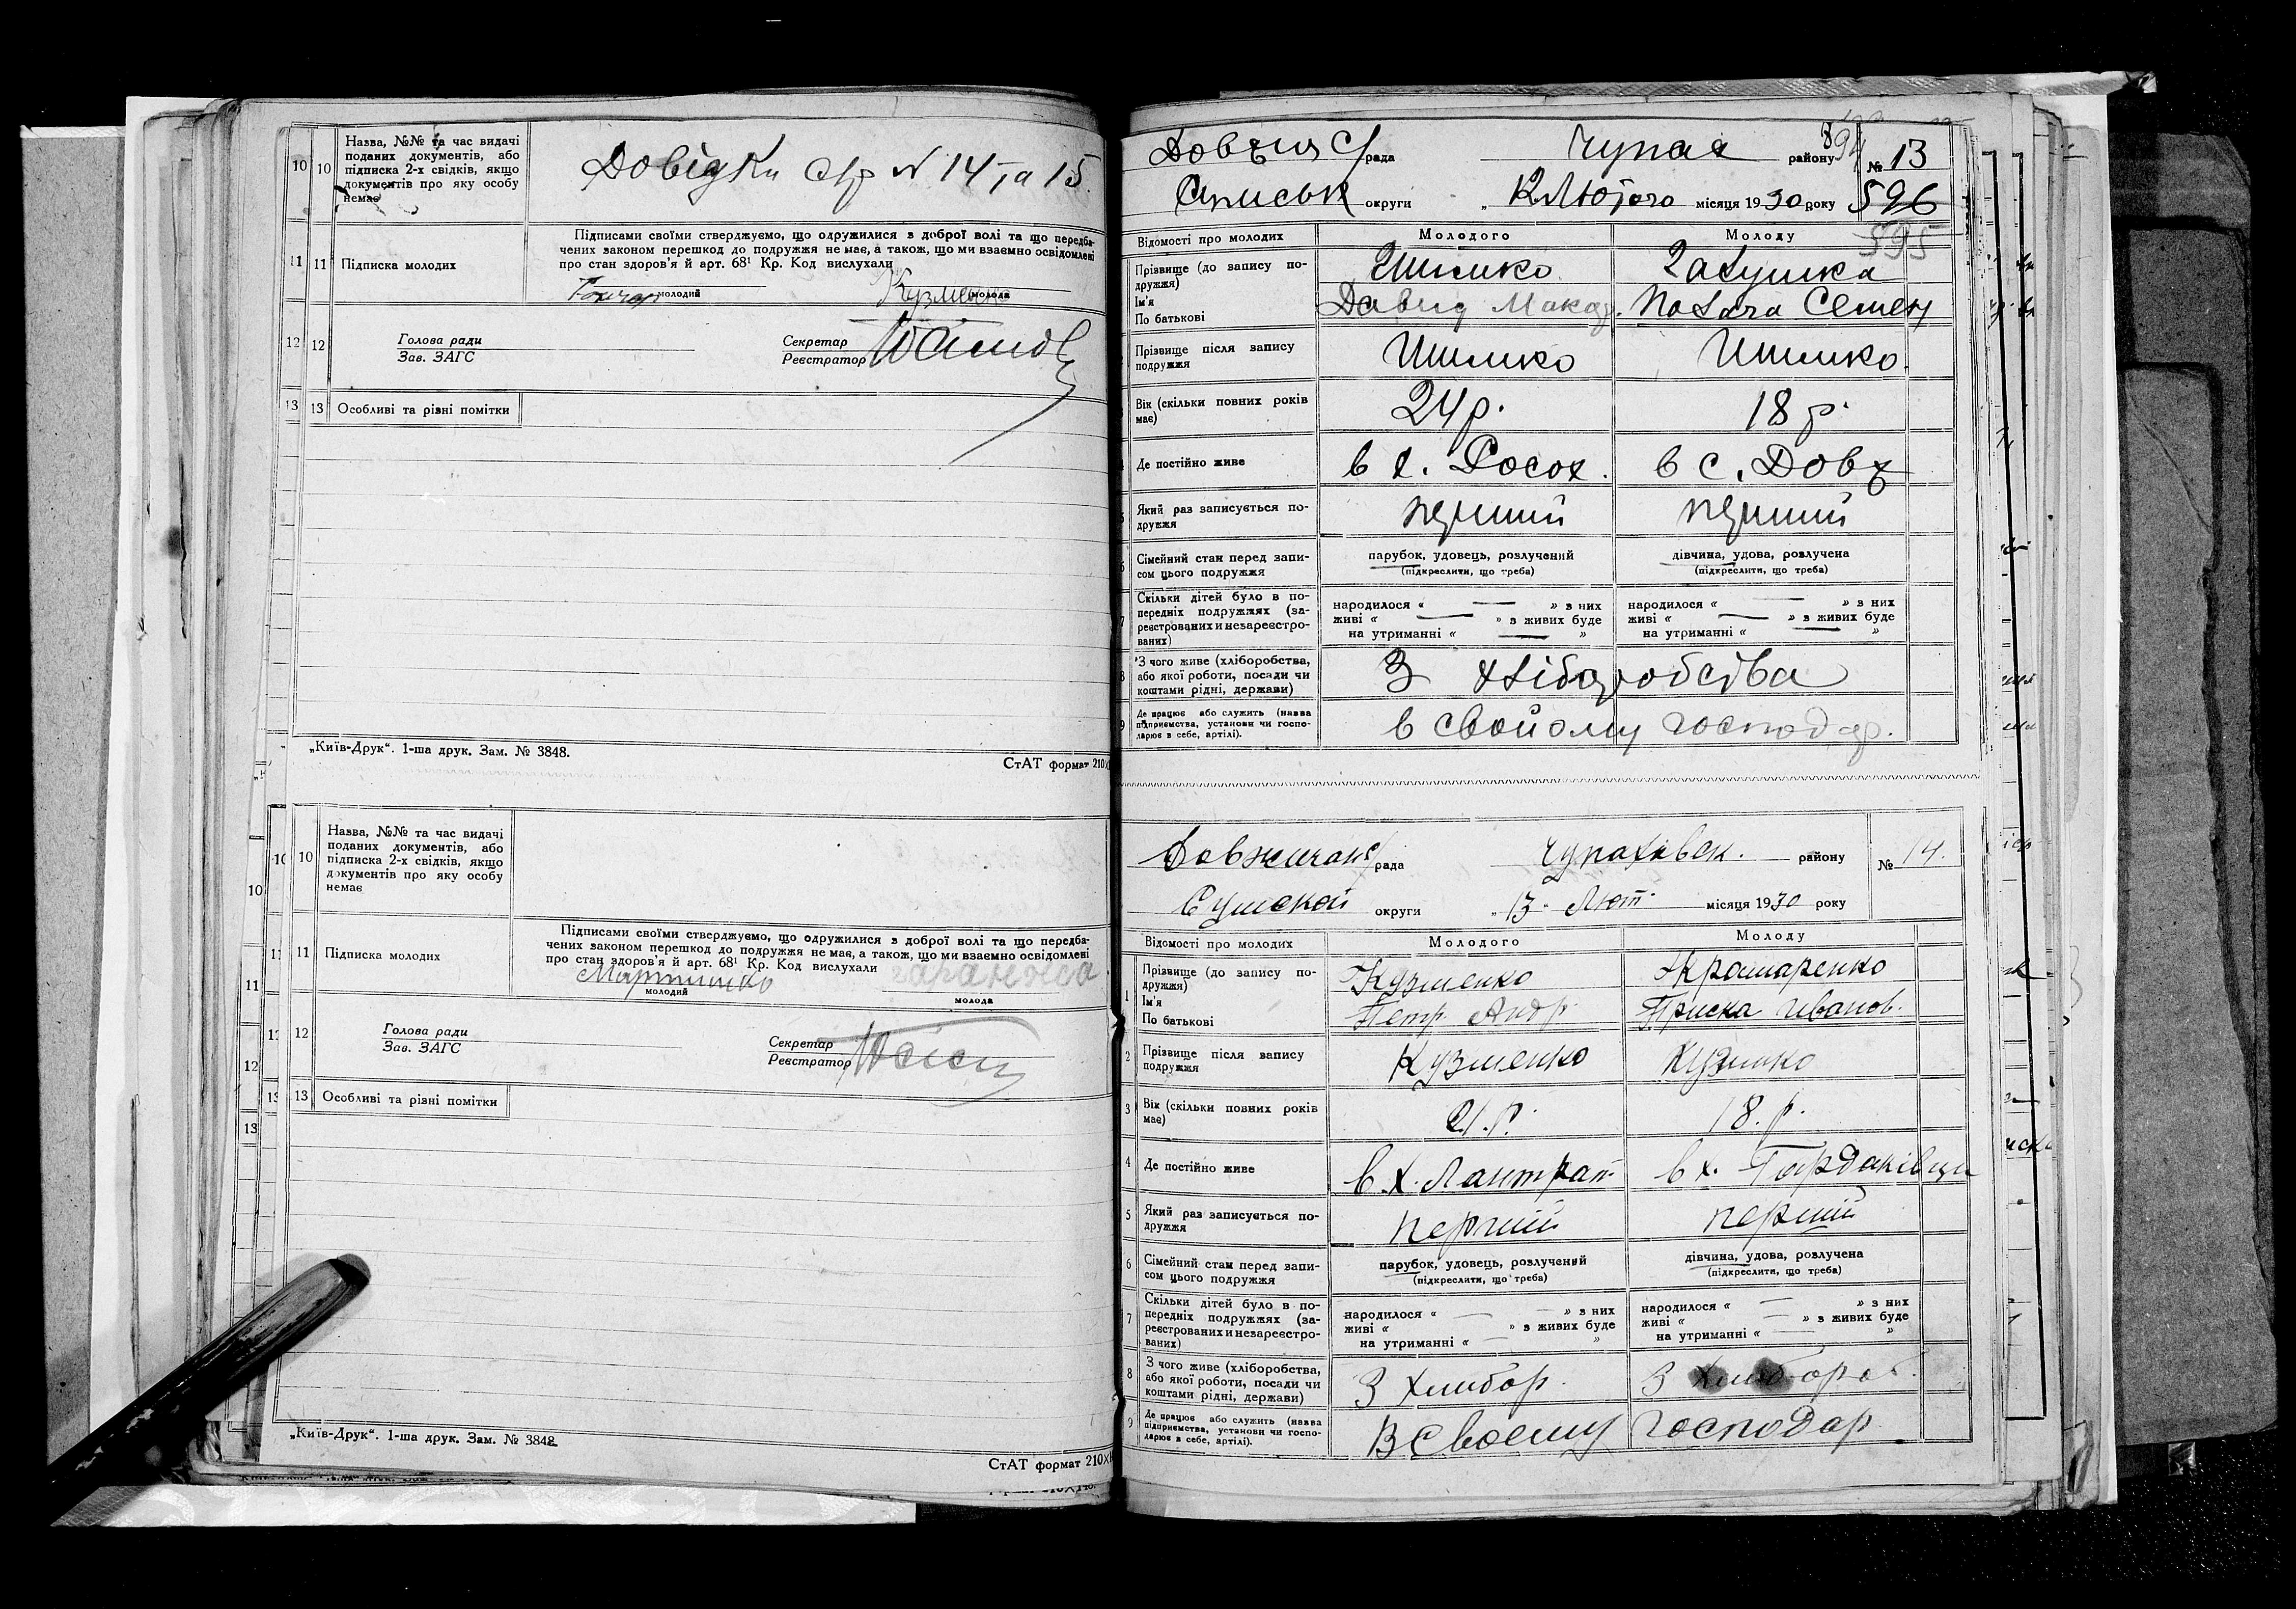 10 10 Назва, №№ та час видачі
поданих документів, або
підписка 2-х свідків, якщо
документів про яку особу
немає
Довідки с/р N 14 та 15.
11 11 Підписка молодих
Підписами своїми стверджуємо, що одружилися з доброї волі та що передба-
чених законом перешкод до подружжя не має, а також, що ми взаємно освідомлені
про стан здоров'я й арт. 68¹ Кр. Код вислухали
Гончар Кузменко
молодий молода
12 12 Голова ради
Зав. ЗАГС
Секретар
Реєстратор
13 13 Особливі та різні помітки
„Київ-Друк“. 1-ша друк. Зам. № 3848.
СтАТ формат 210×
10 10 Назва, №№ та час видачі
поданих документів, або
підписка 2-х свідків, якщо
документів про яку особу
немає
11 11 Підписка молодих
Підписами своїми стверджуємо, що одружилися з доброї волі та що передба-
чених законом перешкод до подружжя не має, а також, що ми взаємно освідомлені
про стан здоров'я й арт. 68¹ Кр. Код вислухали
Мартинко
молодий молода
12 12 Голова ради
Зав. ЗАГС
Секретар
Реєстратор
13 13 Особливі та різні помітки
„Київ-Друк“. 1-ша друк. Зам. № 3848
СтАТ формат 210×
Довжи С/рада Чупах району № 13
Сумськ округи „ Лютого місяця 1930 року 596
595
Відомості про молодих Молодого Молоду
Прізвище (до запису по-
дружжя)
Ім'я
По батькові
Ишенко Галушка
Давид Макар. Палага Семен
Прізвище після запису
подружжя
Ишенко Ишенко.
Вік (скільки повних років
має)
24 р. 18 р.
Де постійно живе
в х. Росох. в с. Довж
Який раз записується по-
дружжя
перший перший
Сімейний стан перед запи-
сом цього подружжя
парубок, удовець, розлучений
(підкреслити, що треба)
дівчина, удова, розлучена
(підкреслити, що треба)
Скільки дітей було в по-
передніх подружжях (за-
реєстрованих и незареєстро-
ваних)
народилося « — » з них
живі « — » з живих буде
на утриманні « — »
народилося « — » з них
живі « — » з живих буде
на утриманні « — »
8 З чого живе (хліборобства,
або якої роботи, посади чи
коштами рідні, держави)
З хліборобства
9 Де працює або служить (назва
підприємства, установи чи госпо-
дарює в себе, артілі).
в свойому господар.
Довжичанс/рада Чупахівськ. району № 14.
Сумской округи „13“ Лют. місяця 1930 року
Відомості про молодих Молодого Молоду
1 Прізвище (до запису по-
дружжя)
Ім'я
По батькові
Кузменко Крамаренко
Петр Андр. Приска Иванов.
2 Прізвище після запису
подружжя
Кузменко Кузменко
3 Вік (скільки повних років
має)
21.р. 18.р.
4 Де постійно живе
в.х. Лантрат в х. Гордаківци
5 Який раз записується по-
дружжя
перший перший
6 Сімейний стан перед запи-
сом цього подружжя
парубок, удовець, розлучений
(підкреслити, що треба)
дівчина, удова, розлучена
(підкреслити, що треба)
7 Скільки дітей було в по-
передніх подружжях (за-
реєстрованих и незареєстро-
ваних)
народилося « — » з них
живі « » з живих буде
на утриманні « — »
народилося « — » з них
живі « » з живих буде
на утриманні « — »
8 З чого живе (хліборобства,
або якої роботи, посади чи
коштами рідні, держави)
З хлибор. З хлибороб.
9 Де працює або служить (назва
підприємства, установи чи госпо-
дарює в себе, артілі).
В своему господар